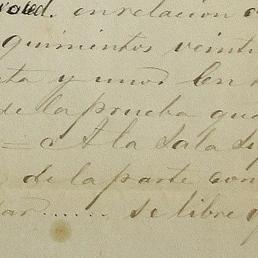 en relacion
quinientos veinti
ta y unos En
de la prueba que
= A la Sala Se
de la parte con
dar ...... se libre